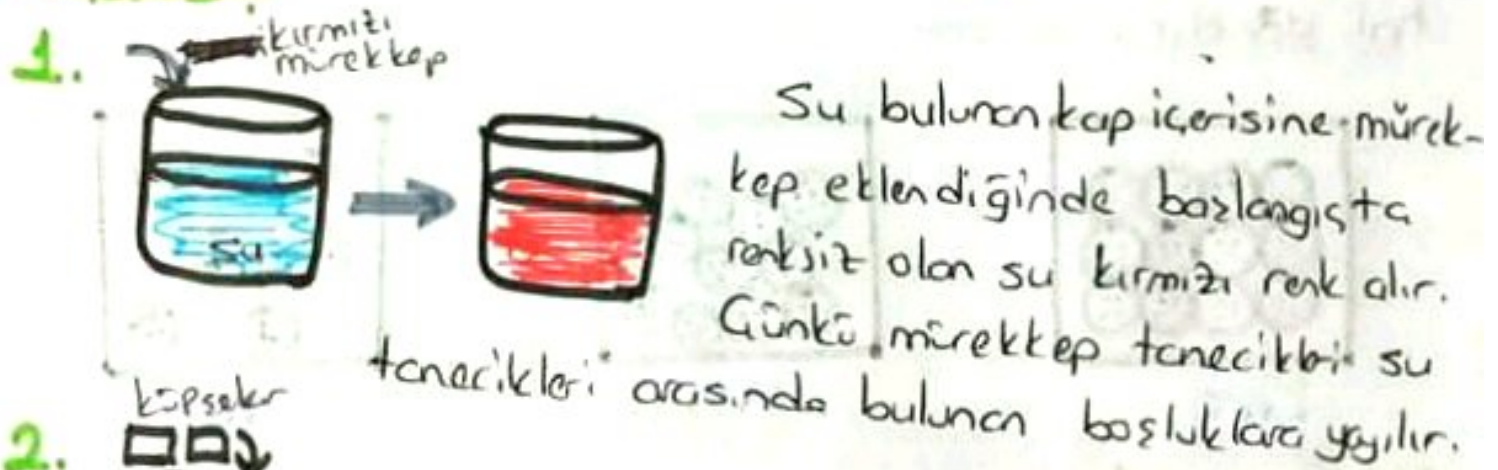 1.
kırmızı
mürekkep
Su
Su bulunan kap içerisine mürek-
kep eklendiğinde başlangışta
renksiz olan su kırmızı renk alır.
Günkü mürekkep tanecikleri su
tanecikleri arasında bulunan boşluklara yayılır.
küpşeker
2.